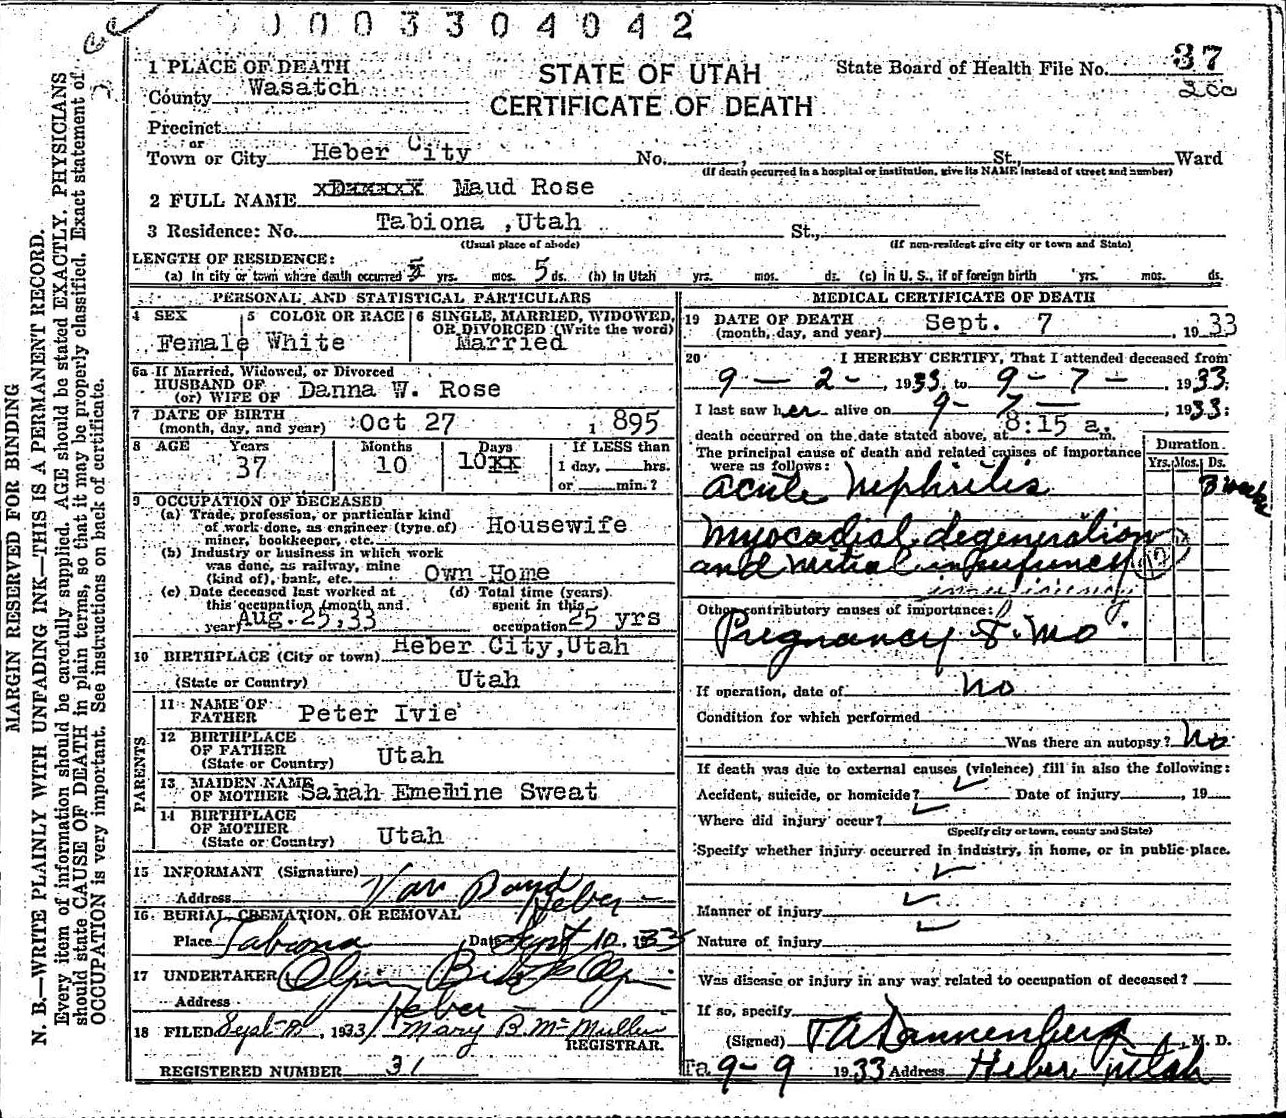 0003304042
1 PLACE OF DEATH
County Wasatch
STATE OF UTAH
CERTIFICATE OF DEATH
State Board of Health File No. 37
2cc
Precinct
or
Town or City Heber City No. , St., Ward
(If death occurred in a hospital or institution, give its NAME instead of street and number)
2 FULL NAME Maud Rose
3 Residence: No. Tabiona ,Utah St.,
(Usual place of abode) (If non-resident give city or town and State)
LENGTH OF RESIDENCE:
(a) In city or town where death occurred yrs. mos. 5 ds. (b) In Utah yrs. mos. ds. (c) In U. S., if of foreign birth yrs. mos. ds.
PERSONAL AND STATISTICAL PARTICULARS
4 SEX Female
5 COLOR OR RACE White
6 SINGLE, MARRIED, WIDOWED, OR DIVORCED (Write the word) Married
6a If Married, Widowed, or Divorced
HUSBAND OF
(or) WIFE OF Danna W. Rose
7 DATE OF BIRTH
(month, day, and year) Oct 27 1 895
8 AGE Years Months Days If LESS than
37 10 10xx 1 day, hrs.
or min.?
9 OCCUPATION OF DECEASED
(a) Trade, profession, or particular kind
of work done, as engineer (type of)
miner, bookkeeper, etc. Housewife
(b) Industry or business in which work
was done, as railway, mine
(kind of), bank, etc. Own Home
(c) Date deceased last worked at
this occupation (month and
year) Aug.25,33
(d) Total time (years)
spent in this
occupation 25 yrs
10 BIRTHPLACE (City or town) Heber City,Utah
(State or Country) Utah
PARENTS
11 NAME OF
FATHER Peter Ivie
12 BIRTHPLACE
OF FATHER
(State or Country) Utah
13 MAIDEN NAME
OF MOTHER Sarah Emeline Sweat
14 BIRTHPLACE
OF MOTHER
(State or Country) Utah
15 INFORMANT (Signature) Van
Address Heber
16 BURIAL, CREMATION, OR REMOVAL
Place Tabiona Date Sept 10, 1933
17 UNDERTAKER Olpin
Address Heber
18 FILED Sept 1933 Mary B. McMullin
REGISTRAR.
REGISTERED NUMBER 31
MEDICAL CERTIFICATE OF DEATH
19 DATE OF DEATH
(month, day, and year) Sept. 7 1933
20 I HEREBY CERTIFY, That I attended deceased from
9 - 2 - , 1933, to 9 - 7 - , 1933.
I last saw her alive on 9 - 7 - , 1933:
death occurred on the date stated above, at 8:15 a. m.
The principal cause of death and related causes of importance
were as follows:
Duration
Yrs. Mos. Ds.
Acute Nephritis 3 weeks
Myocadial degeneration
and Mitral
insufficiency
Other contributory causes of importance:
Pregnancy 8 mo.
If operation, date of No
Condition for which performed
Was there an autopsy? No
If death was due to external causes (violence) fill in also the following:
Accident, suicide, or homicide? Date of injury , 19
Where did injury occur?
(Specify city or town, county and State)
Specify whether injury occurred in industry, in home, or in public place.
Manner of injury
Nature of injury
Was disease or injury in any way related to occupation of deceased?
If so, specify
(Signed) T A Dannenberg, M. D.
9 - 9 1933 Address Heber Utah
MARGIN RESERVED FOR BINDING
N. B.—WRITE PLAINLY WITH UNFADING INK—THIS IS A PERMANENT RECORD.
Every item of information should be carefully supplied. AGE should be stated EXACTLY. PHYSICIANS
should state CAUSE OF DEATH in plain terms, so that it may be properly classified. Exact statement of
OCCUPATION is very important. See instructions on back of certificate.